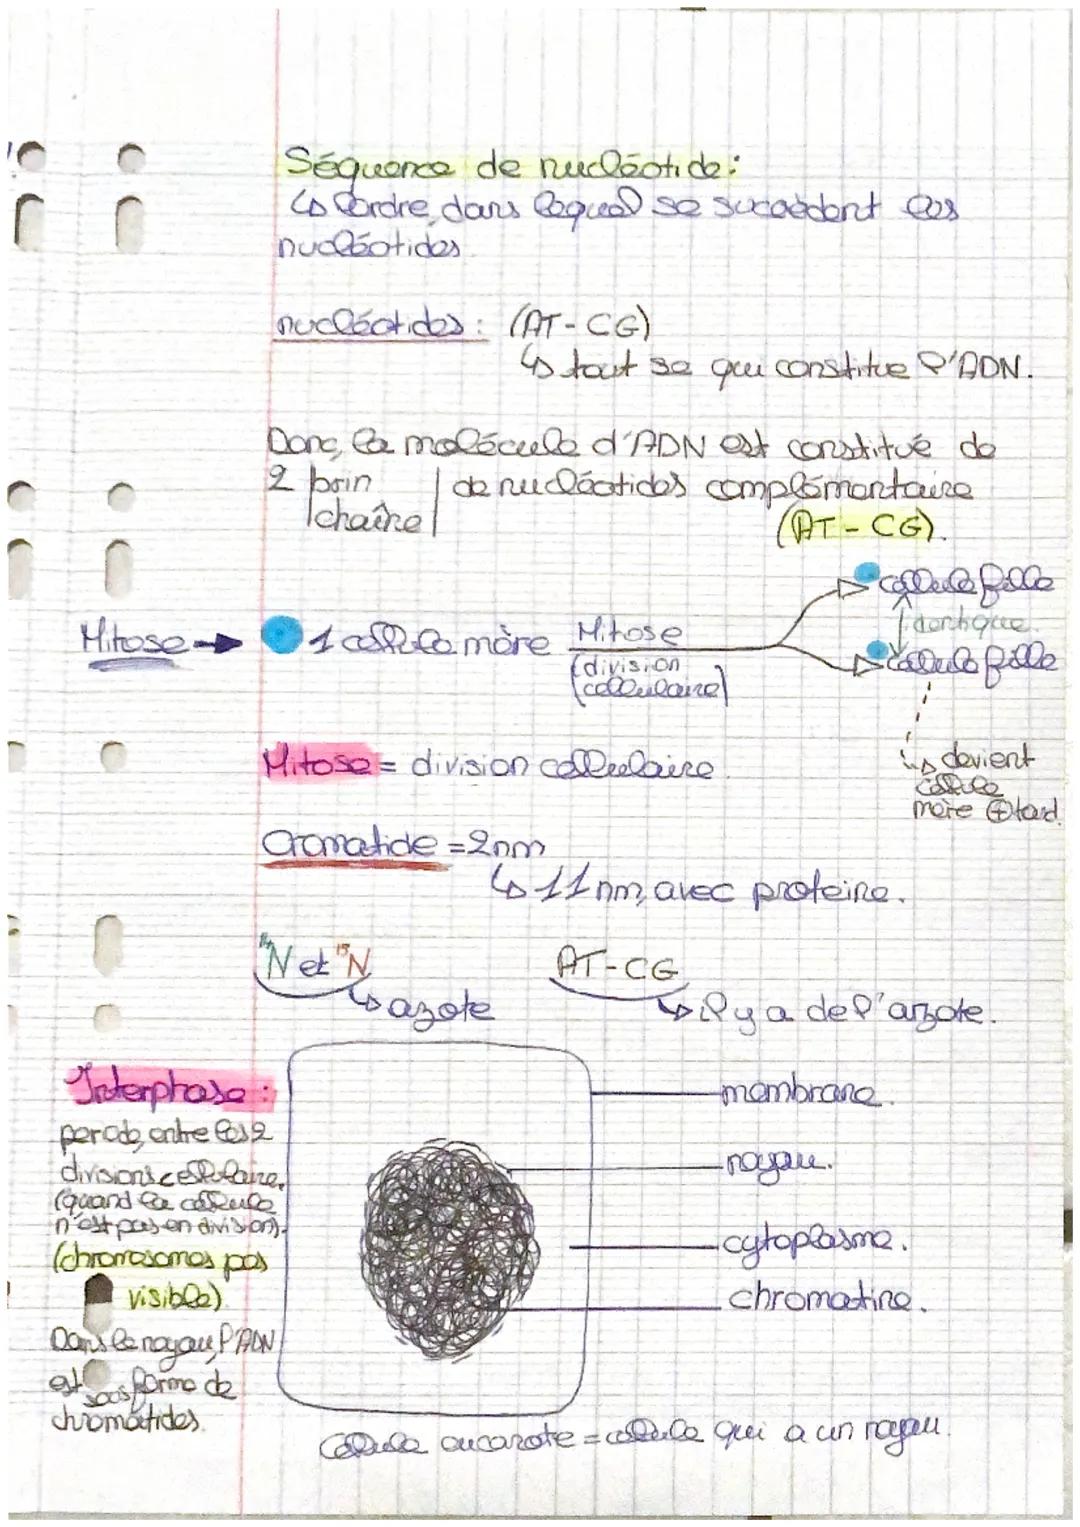 Séquence de nucléotide:
↳ l'ordre, dans lequel se succèdent les
nucléotides
nucléotides : (AT-CG)
↳ tout se qui constitue l'ADN.
Donc, la molécule d'ADN est constitué de
2 brin | de nucléotides complémentaire
chaîne | (AT-CG).
cellule fille
identique
Mitose → 1 cellule mère Mitose
(division
cellulaire)
cellule fille
↳ devient
cellule
mère ⊕ tard.
Mitose = division cellulaire
Cromatide = 2nm
↳ 11 nm, avec proteine.
¹⁴N et ¹⁵N AT-CG
↳ azote ↳ il y a de l'azote.
Interphase :
periode, entre les 2
divisions cellulaire.
(quand la cellule
n'est pas en division).
(chromosomes pas
visible)
Dans le noyau, l'ADN
est sous forme de
chromatides.
membrane.
noyau.
cytoplasme.
chromatine.
Cellule eucarote = cellule qui a un noyau.